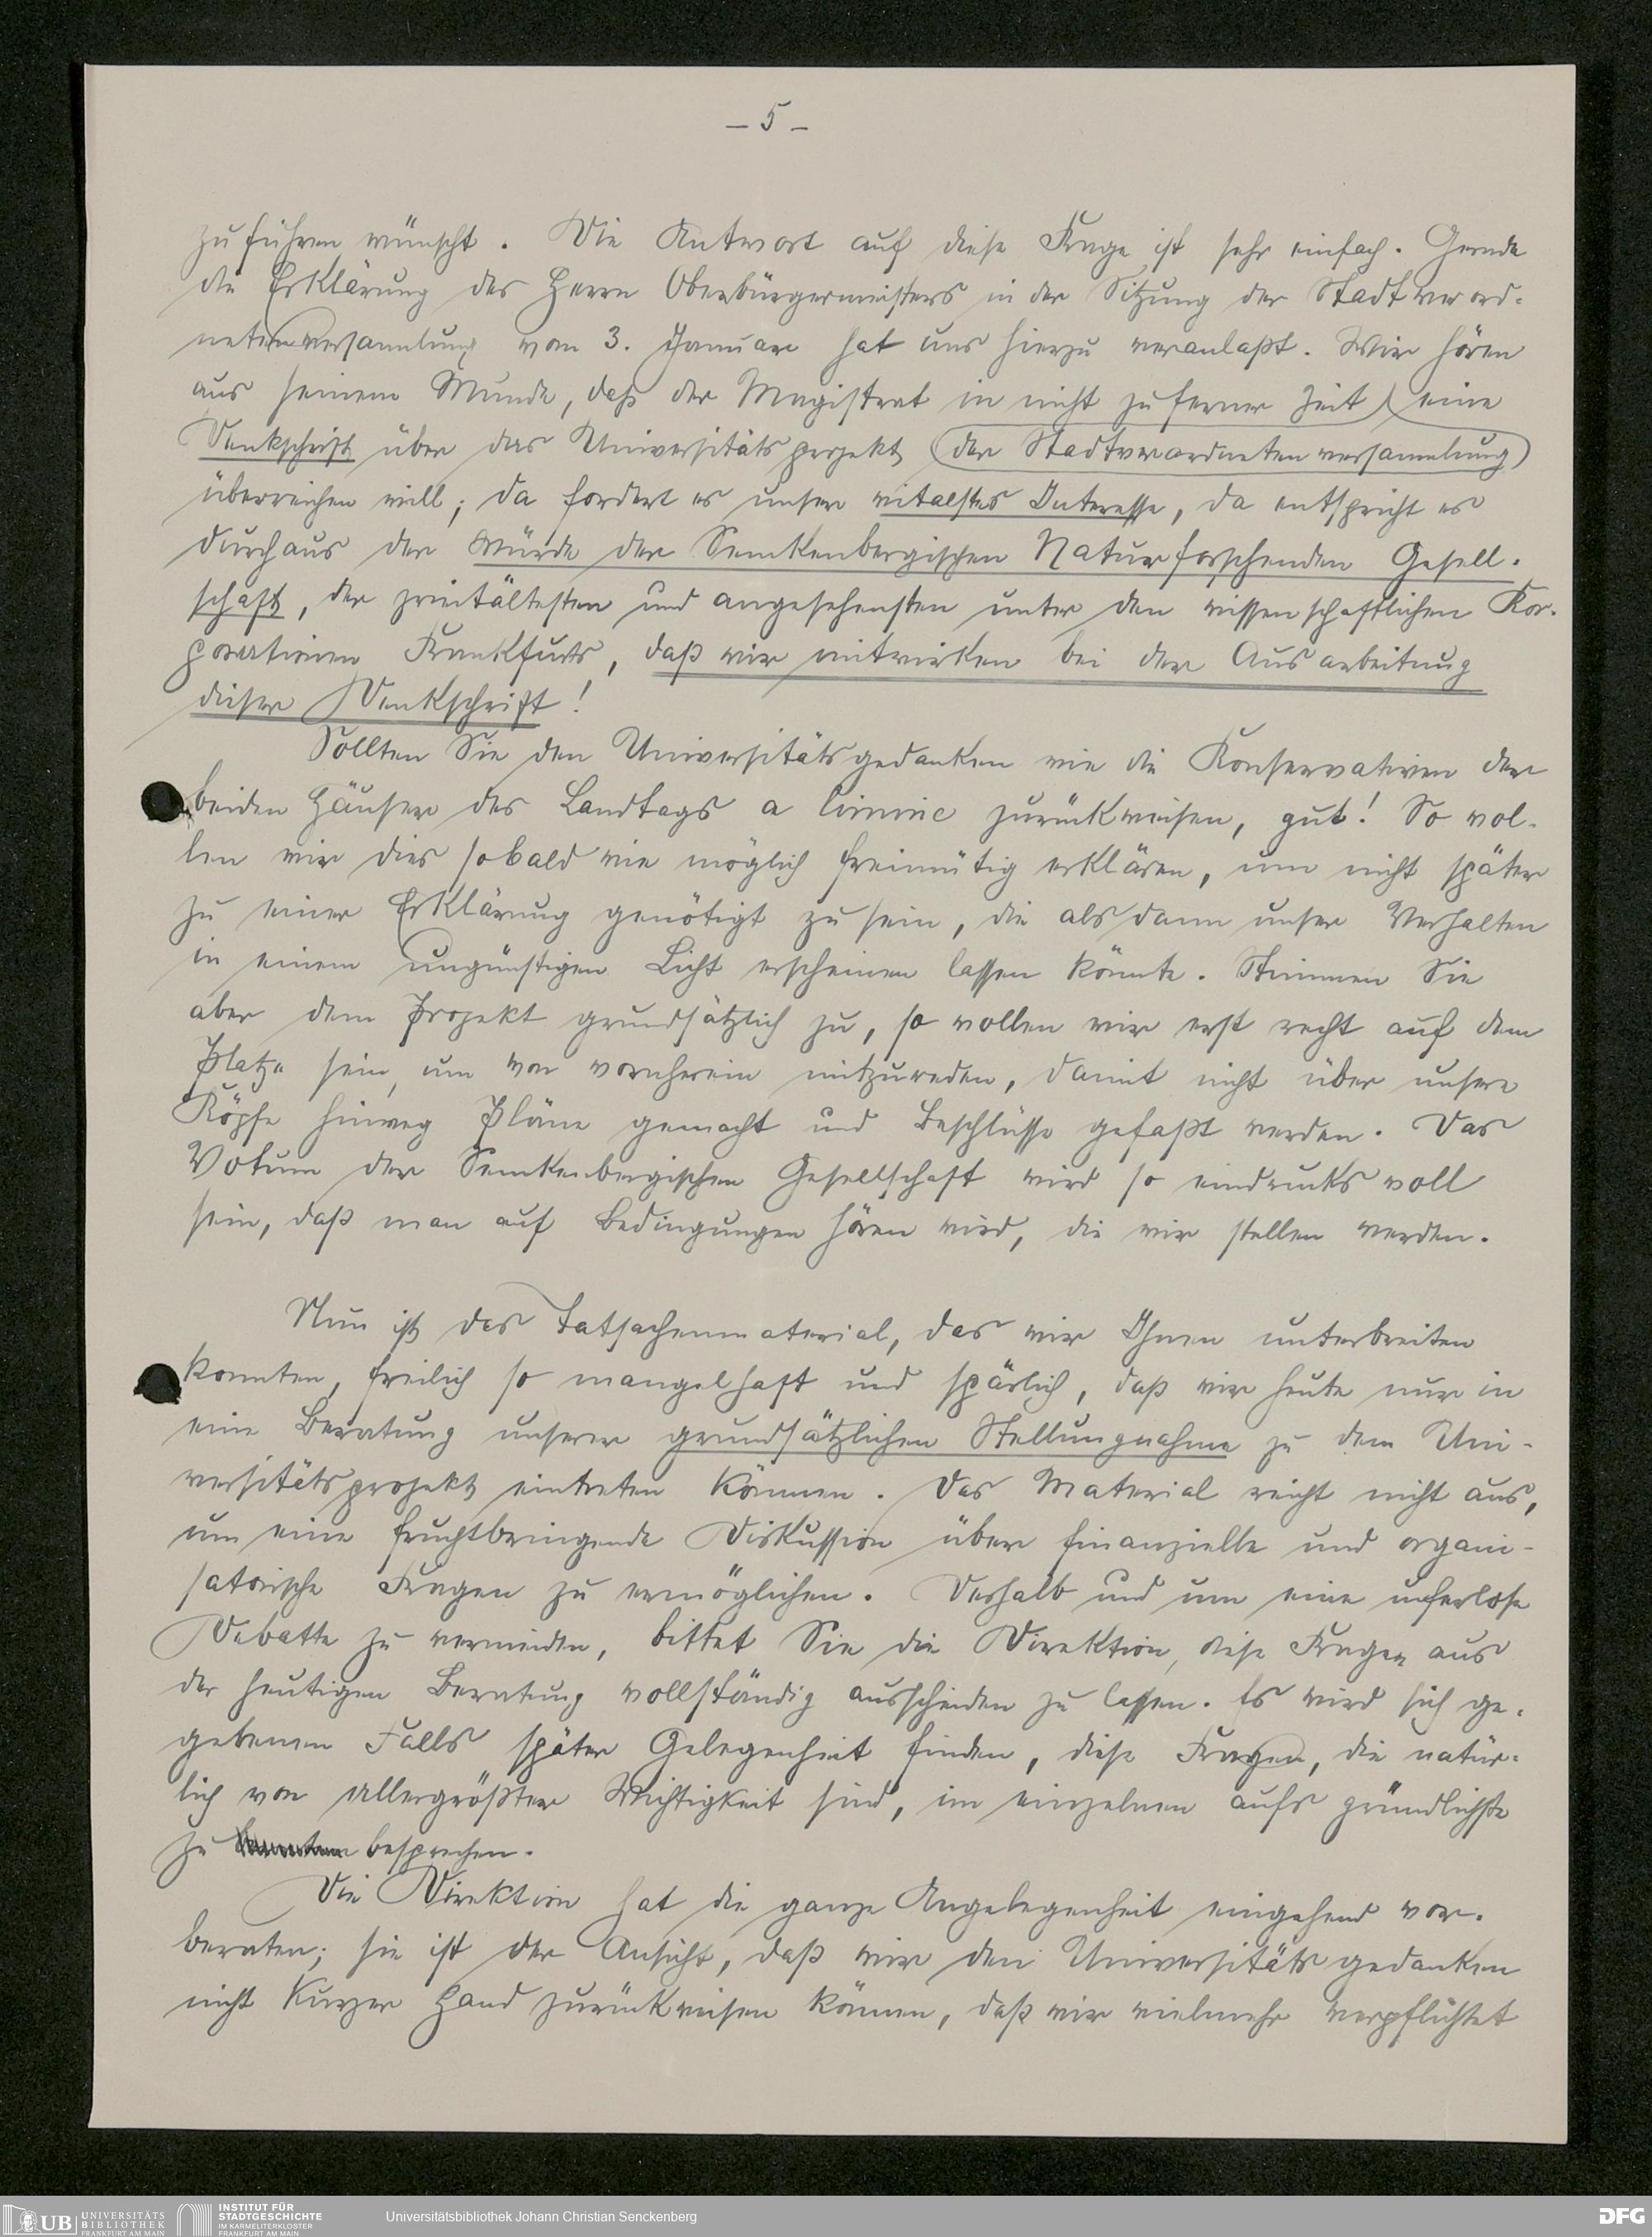 – 5 –
zuführen wünscht. Die Antwort auf diese Frage ist sehr einfach. Gerade
die Erklärung des Herrn Oberbürgermeisters in der Sitzung der Stadtverord-
netenversammlung vom 3. Januar hat uns hierzu veranlaßt. Wir hören
aus seinem Munde, daß der Magistrat in nicht zu ferner Zeit eine
Denkschrift über das Universitätsprojekt der Stadtverordnetenversammlung
überreichen will; da fordert es unser vitalstes Interesse, da entspricht es
durchaus der Würde der Senckenbergischen Naturforschenden Gesell-
schaft, der zweitältesten und angesehensten unter den wissenschaftlichen Kor-
porationen Frankfurts, daß wir mitwirken bei der Ausarbeitung
dieser Denkschrift!
Sollten Sie den Universitätsgedanken wie die Konservativen der
beiden Häuser des Landtags a limine zurückweisen, gut! So wol-
len wir dies sobald wie möglich freimütig erklären, um nicht später
zu einer Erklärung genötigt zu sein, die alsdann unser Verhalten
in einem ungünstigen Licht erscheinen lassen könnte. Stimmen Sie
aber dem Projekt grundsätzlich zu, so wollen wir erst recht auf dem
Platze sein, um von vornherein mitzureden, damit nicht über unsere
Köpfe hinweg Pläne gemacht und Beschlüsse gefaßt werden. Das
Votum der Senckenbergischen Gesellschaft wird so eindrucksvoll
sein, daß man auf Bedingungen hören wird, die wir stellen werden.
Nun ist das Tatsachenmaterial, das wir Ihnen unterbreiten
konnten, freilich so mangelhaft und spärlich, daß wir heute nur in
eine Beratung unserer grundsätzlichen Stellungnahme zu dem Uni-
versitätsprojekt eintreten können. Das Material reicht nicht aus,
um eine fruchtbringende Diskussion über finanzielle und organi-
satorische Fragen zu ermöglichen. Deshalb und um eine uferlose
Debatte zu vermeiden, bittet Sie die Direktion, diese Fragen aus
der heutigen Beratung vollständig ausscheiden zu lassen. Es wird sich ge-
gebenen Falls später Gelegenheit finden, diese Fragen, die natür-
lich von allergrößter Wichtigkeit sind, im einzelnen aufs gründlichste
zu besprechen.
Die Direktion hat die ganze Angelegenheit eingehend vor-
beraten; sie ist der Ansicht, daß wir den Universitätsgedanken
nicht kurzer Hand zurückweisen können, daß wir vielmehr verpflichtet
UB UNIVERSITÄTS BIBLIOTHEK FRANKFURT AM MAIN
INSTITUT FÜR STADTGESCHICHTE IM KARMELITERKLOSTER FRANKFURT AM MAIN
Universitätsbibliothek Johann Christian Senckenberg
DFG